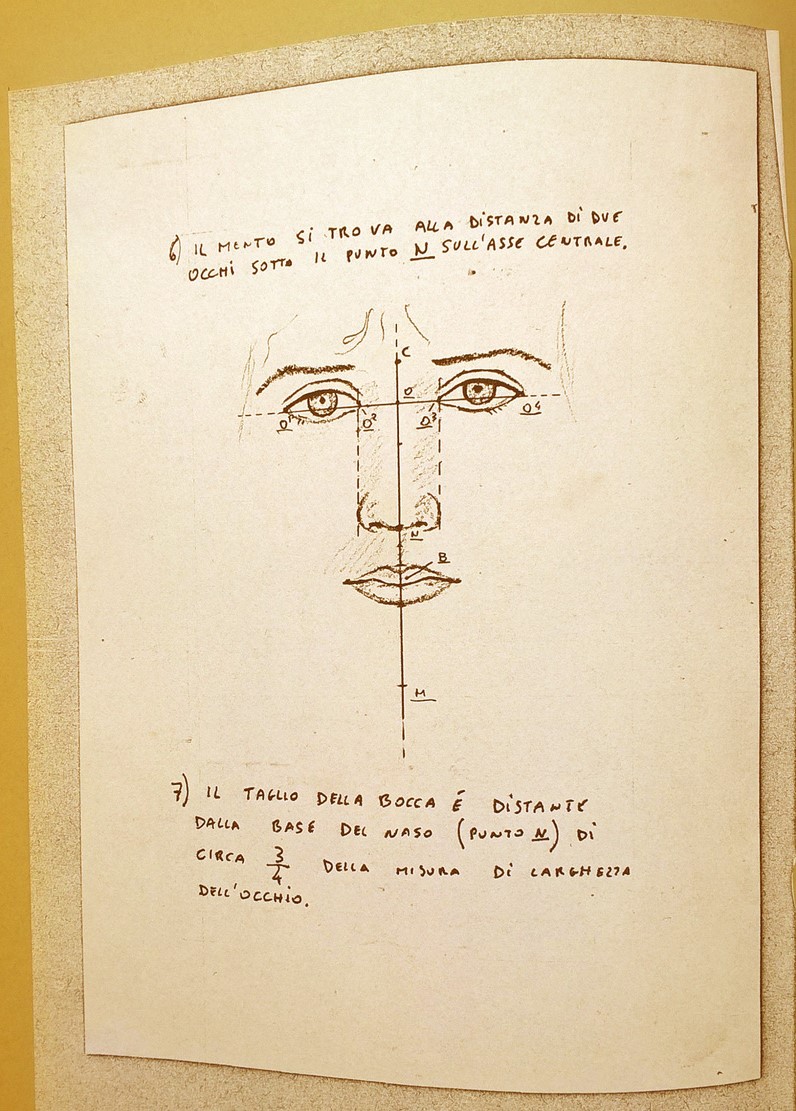 6) IL MENTO SI TROVA ALLA DISTANZA DI DUE
OCCHI SOTTO IL PUNTO N SULL'ASSE CENTRALE.
C
O
O1 O2 O3 O4
N
B
M
7) IL TAGLIO DELLA BOCCA É DISTANTE
DALLA BASE DEL NASO (PUNTO N) DI
CIRCA 3/4 DELLA MISURA DI LARGHEZZA
DELL'OCCHIO.